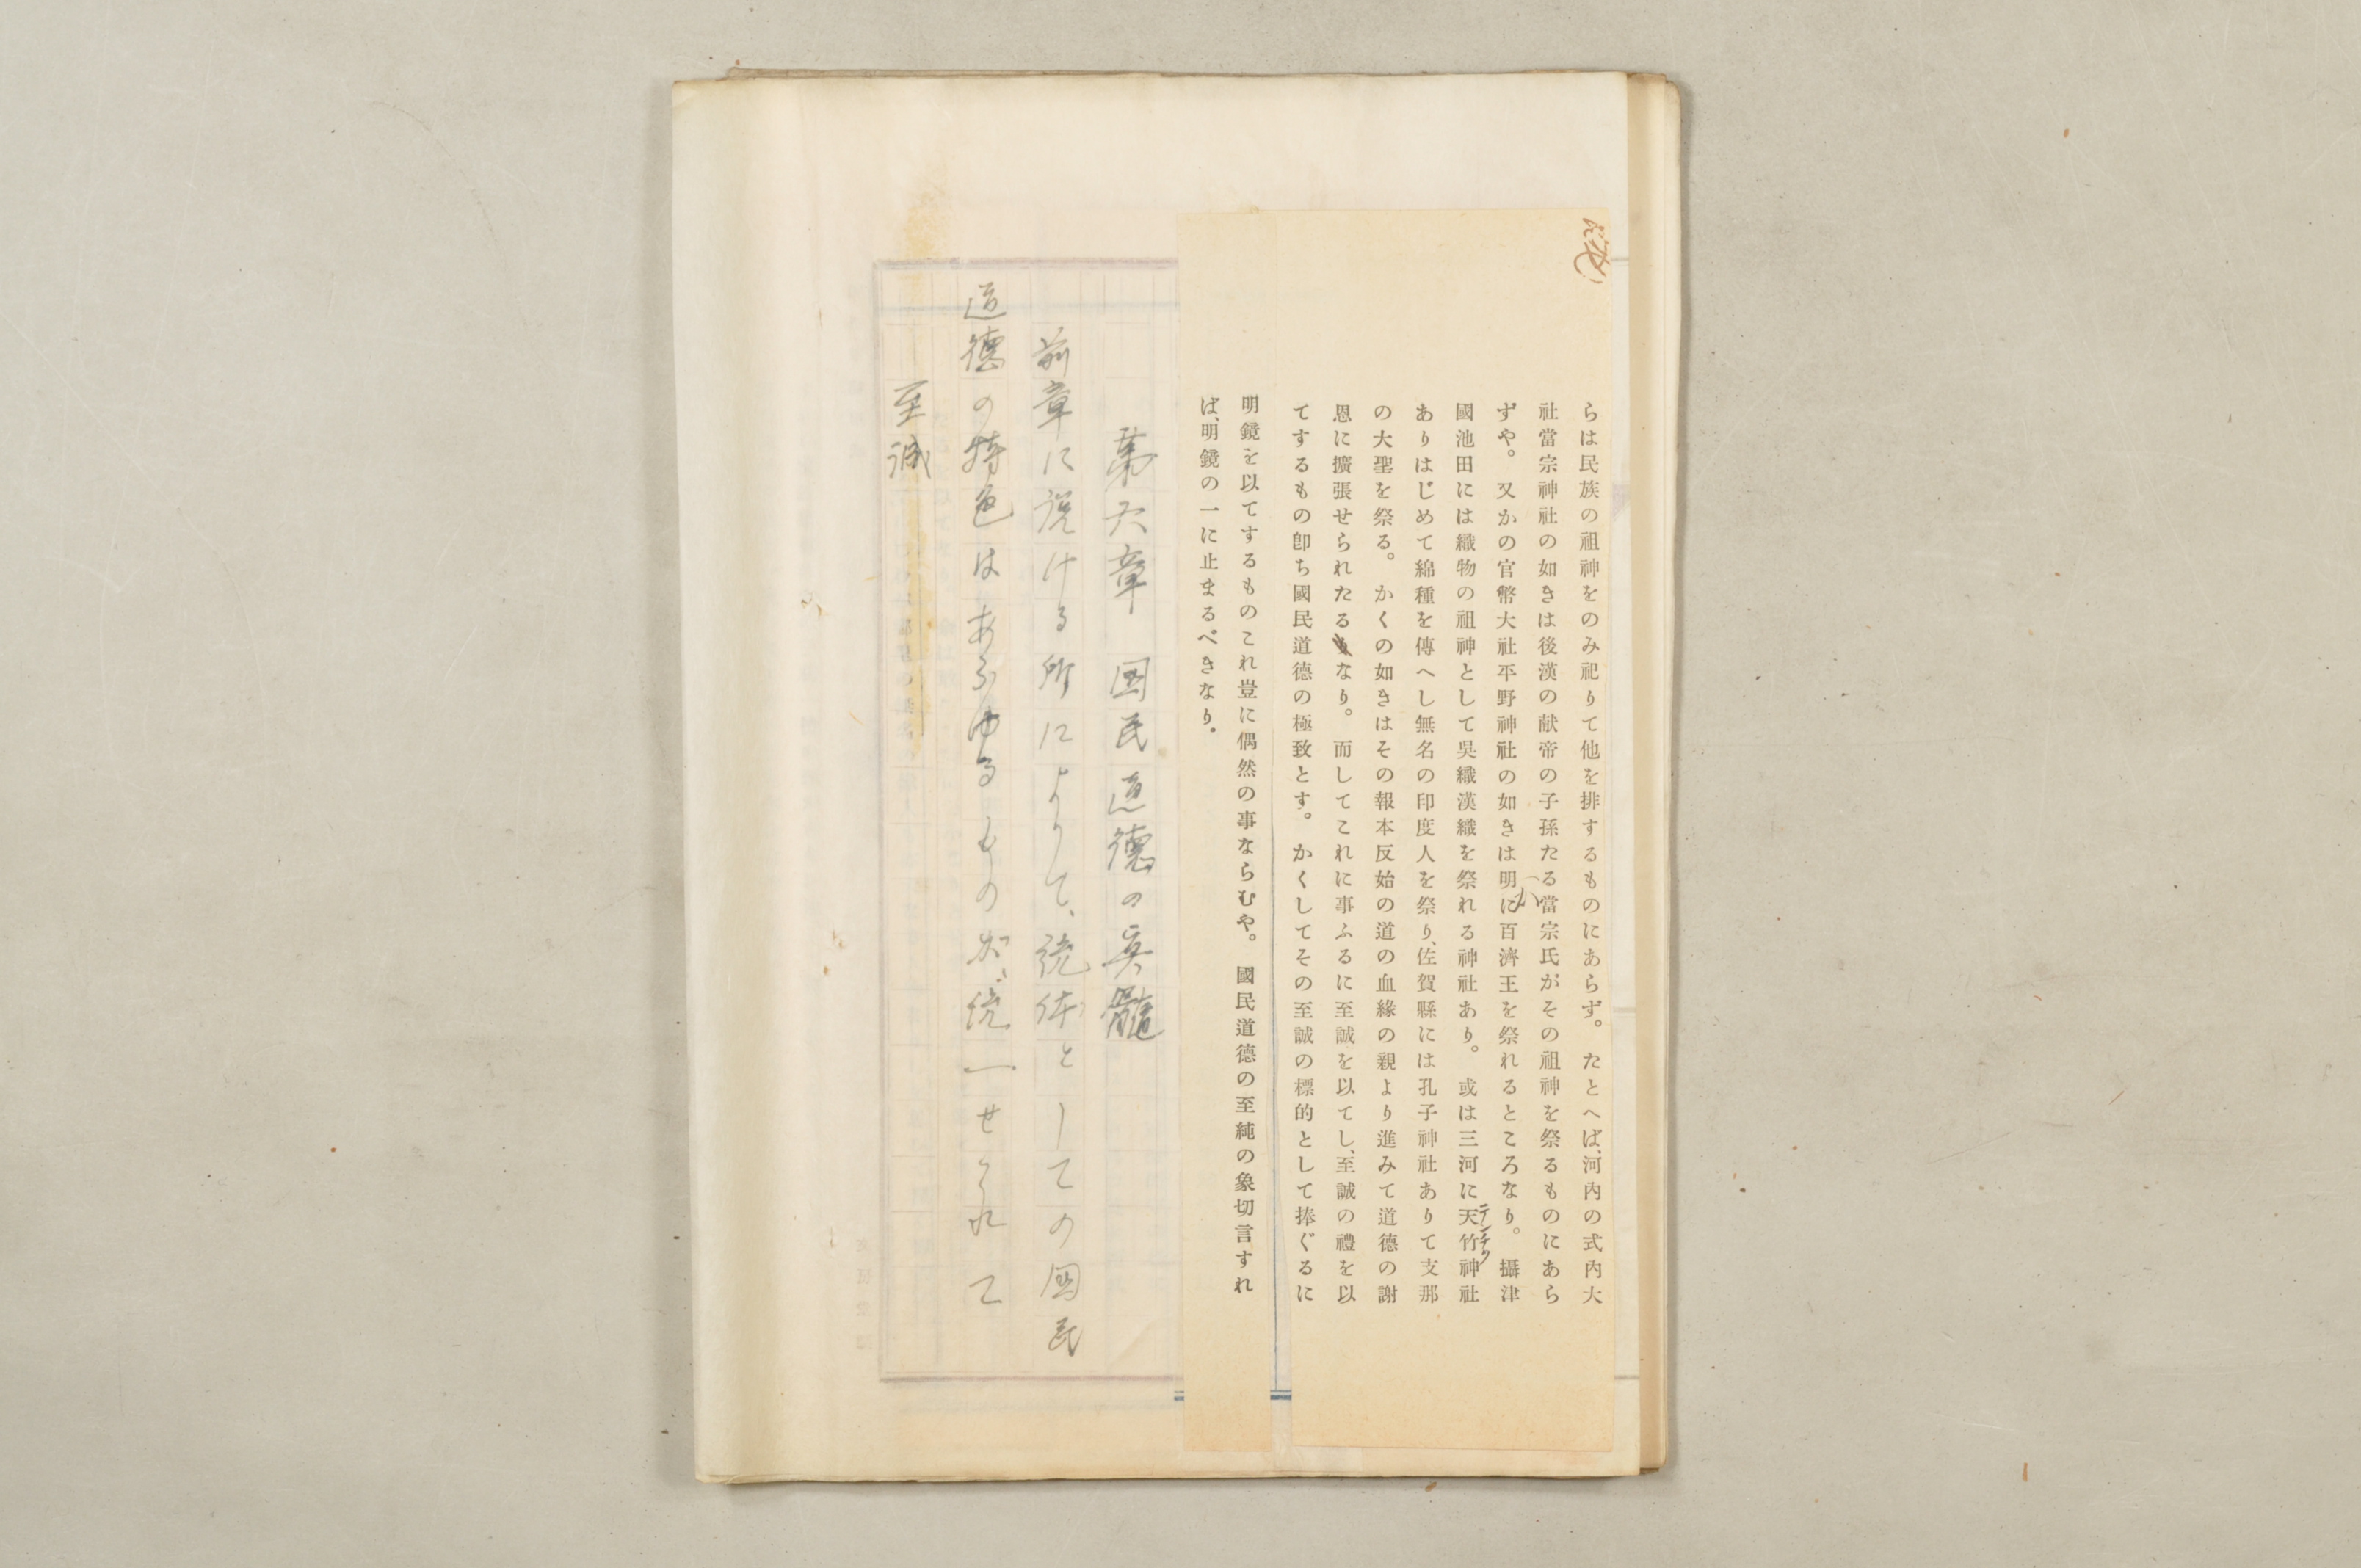 らは民族の祖神をのみ祀りて他を排するものにあらず。たとへば、河內の式內大
社當宗神社の如きは後漢の献帝の子孫たる當宗氏がその祖神を祭るものにあら
ずや。又かの官幣大社平野神社の如きは明に百濟王を祭れるところなり。攝津
か
國池田には織物の祖神として吳織漢織を祭れる神社あり。或は三河に天竹神社
テンチク
ありはじめて綿種を傳へし無名の印度人を祭り、佐賀縣には孔子神社ありて支那
の大聖を祭る。かくの如きはその報本反始の道の血緣の親より進みて道德の謝
恩に擴張せられたるなり。而してこれに事ふるに至誠を以てし、至誠の禮を以
てするもの卽ち國民道德の極致とす。かくしてその至誠の標的として捧ぐるに
明鏡を以てするものこれ豈に偶然の事ならむや。國民道德の至純の象切言すれ
ば、明鏡の一に止まるべきなり。
第六章 国民道德の真髓
前章に說ける所によりて、統体としての国民
道德の特色はあらゆるものが、統一せられて
至誠